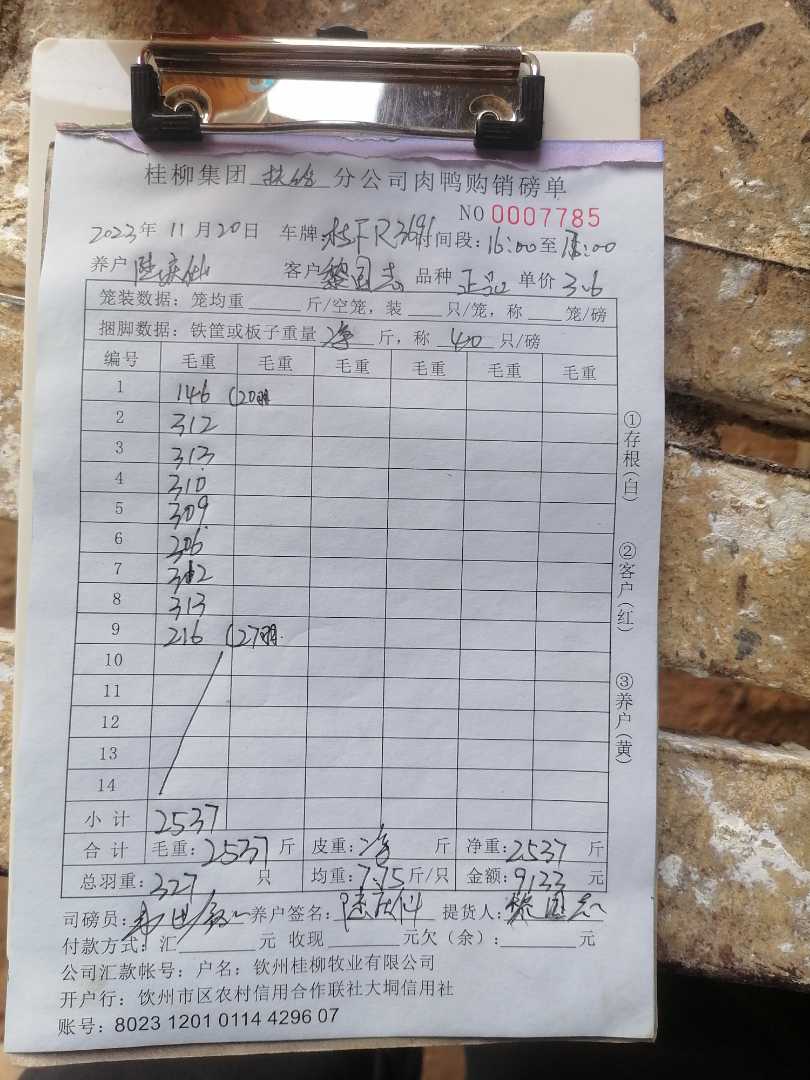 桂柳集团 分公司肉鸭购销磅单
NO 0007785
2023年 11月20日 车牌: R3691 时间段: 16:00至 :00
养户 客户 黎国志 品种 正品 单价 3.6
笼装数据: 笼均重 斤/空笼, 装 只/笼, 称 笼/磅
捆脚数据: 铁筐或板子重量 净 斤, 称 40 只/磅
编号 毛重 毛重 毛重 毛重 毛重 毛重
1 146 (20羽
2 312
3 313
4 310
5 309
6 306
7 312
8 313
9 216 (27羽.
10
11
12
13
14
小计 2537
合计 毛重: 2537 斤 皮重: 净 斤 净重: 2537 斤
总羽重: 327 只 均重: 7.75 斤/只 金额: 9133 元
司磅员: 养户签名: 提货人: 黎国志
付款方式: 汇 元 收现 元欠(余): 元
公司汇款帐号: 户名: 钦州桂柳牧业有限公司
开户行: 饮州市区农村信用合作联社大垌信用社
账号: 8023 1201 0114 4296 07
①存根(白)
②客户(红)
③养户(黄)